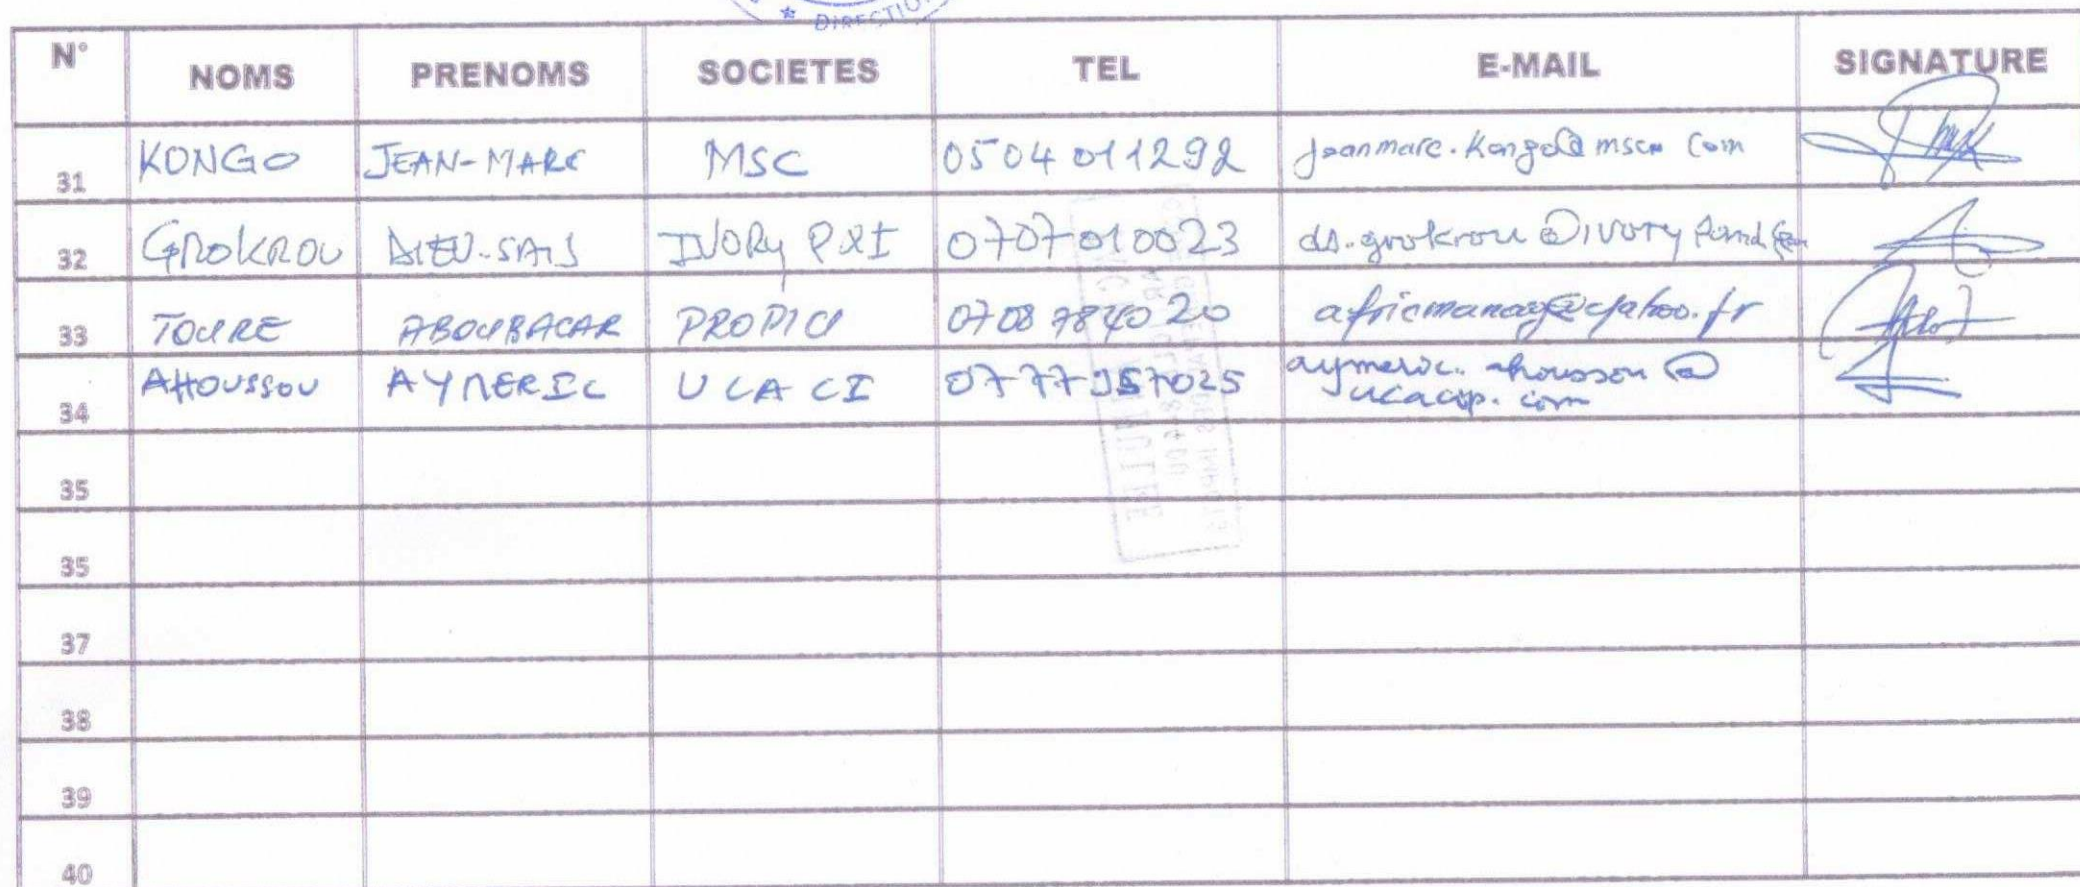 DIRECTION
N° NOMS PRENOMS SOCIETES TEL E-MAIL SIGNATURE
31 KONGO JEAN-MARC MSC 0504011292 jeanmarc.kongo@msc.com
32 GROKROU DIEU-SAIS IVORY P&I 0707010023 ds.grokrou@ivory
33 TOURE ABOUBACAR 0708784020 africmanag@yahoo.fr
34 AHOUSSOU AYMERIC UCACI aymeric.ahoussou@
35
35
37
38
39
40